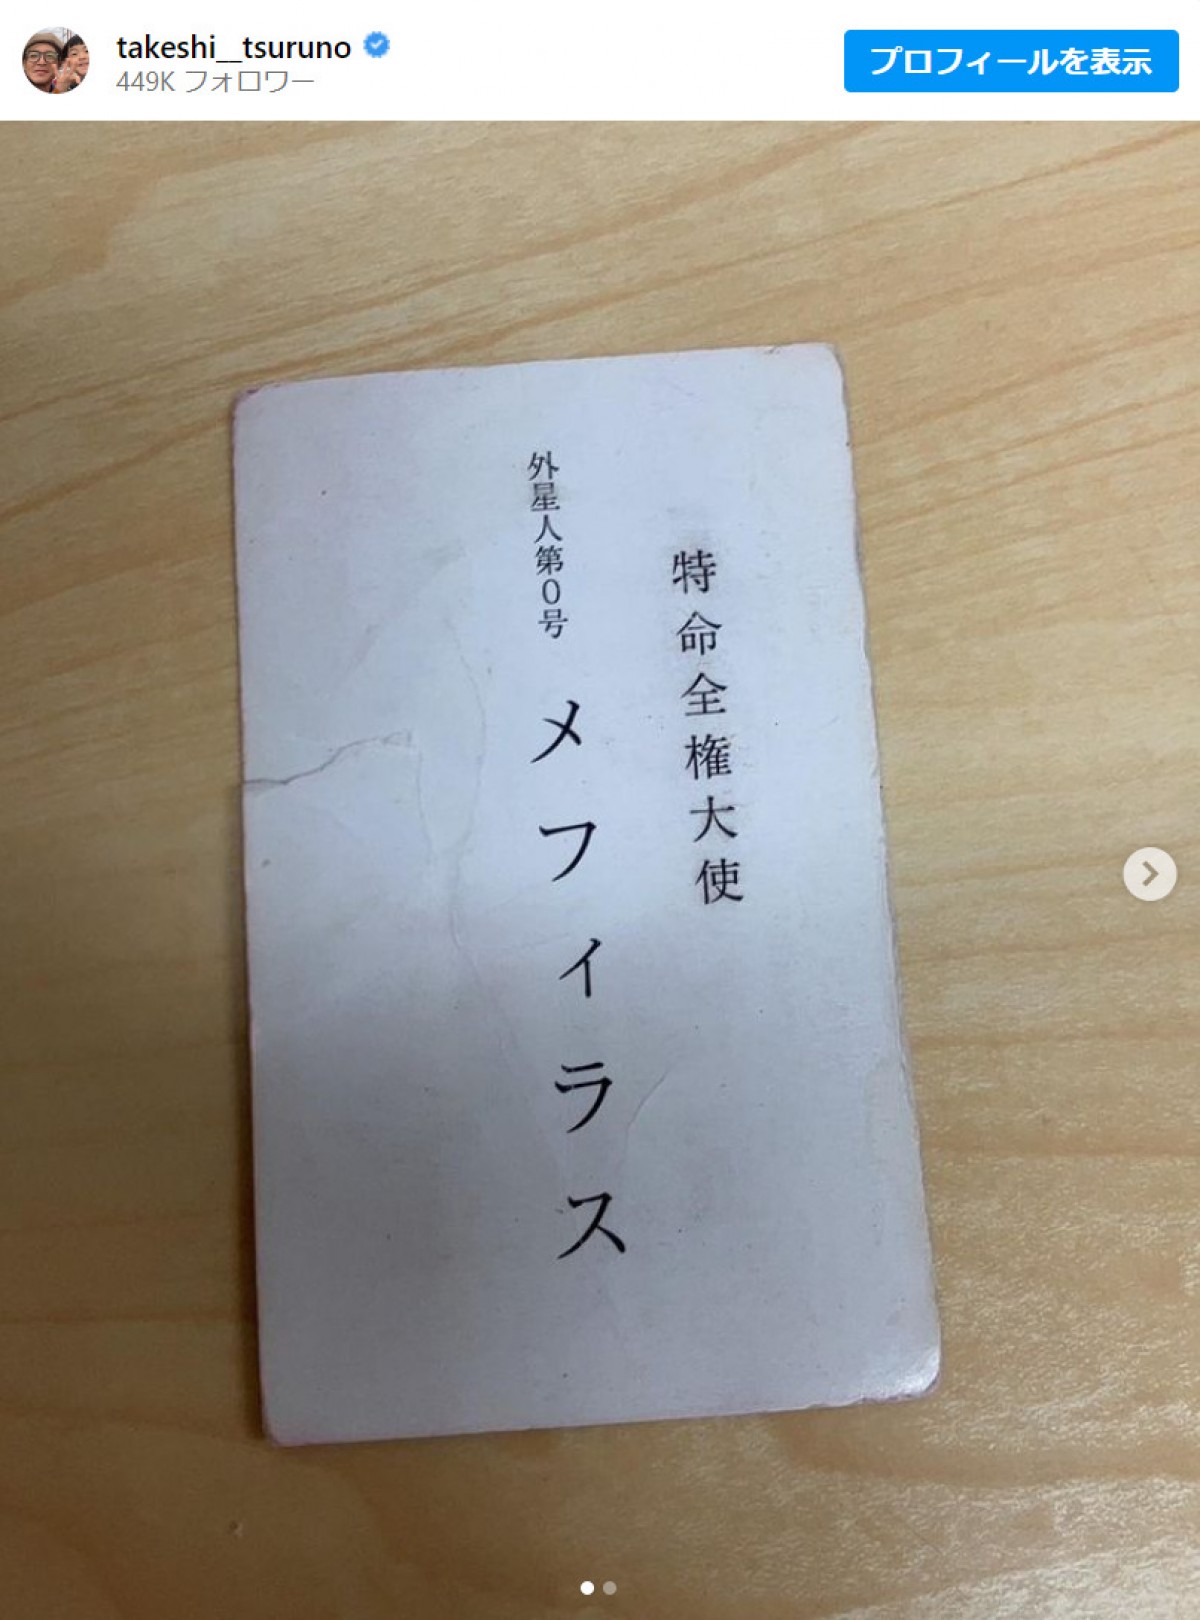 takeshi__tsuruno
449K フォロワー
プロフィールを表示
特命全権大使
外星人第0号 メフィラス